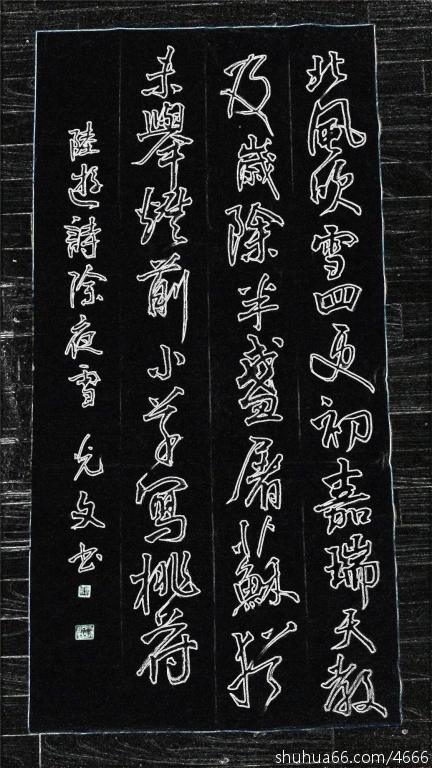 北風吹雪四更初嘉瑞天教
及歲除半盞屠蘇猶
未舉燈前小草寫桃符
陸游詩除夜雪 允文书
shuhua66.com/4666